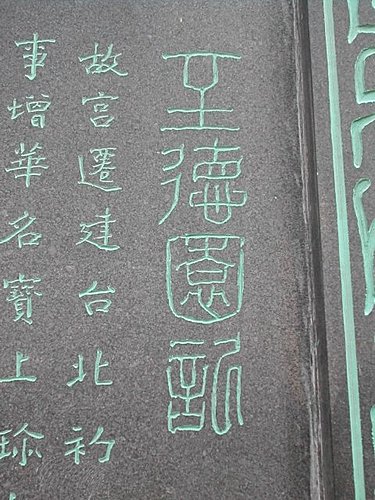 至德園記
故宮遷建台北初
事增華名寶上珍